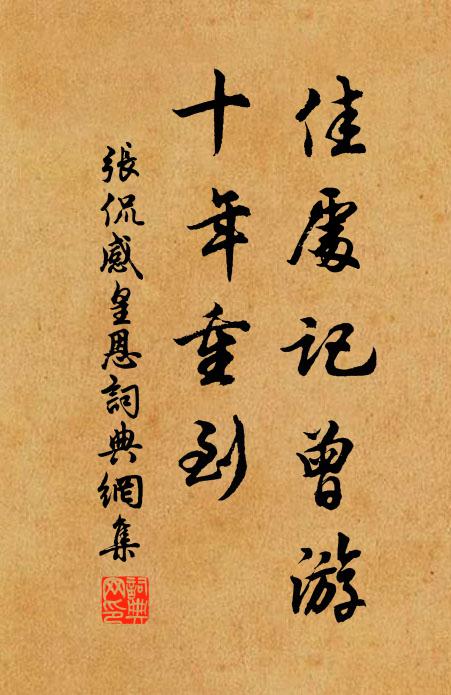 佳處記曾游
十年重到
張侃感皇恩詞典網集
詞典网印